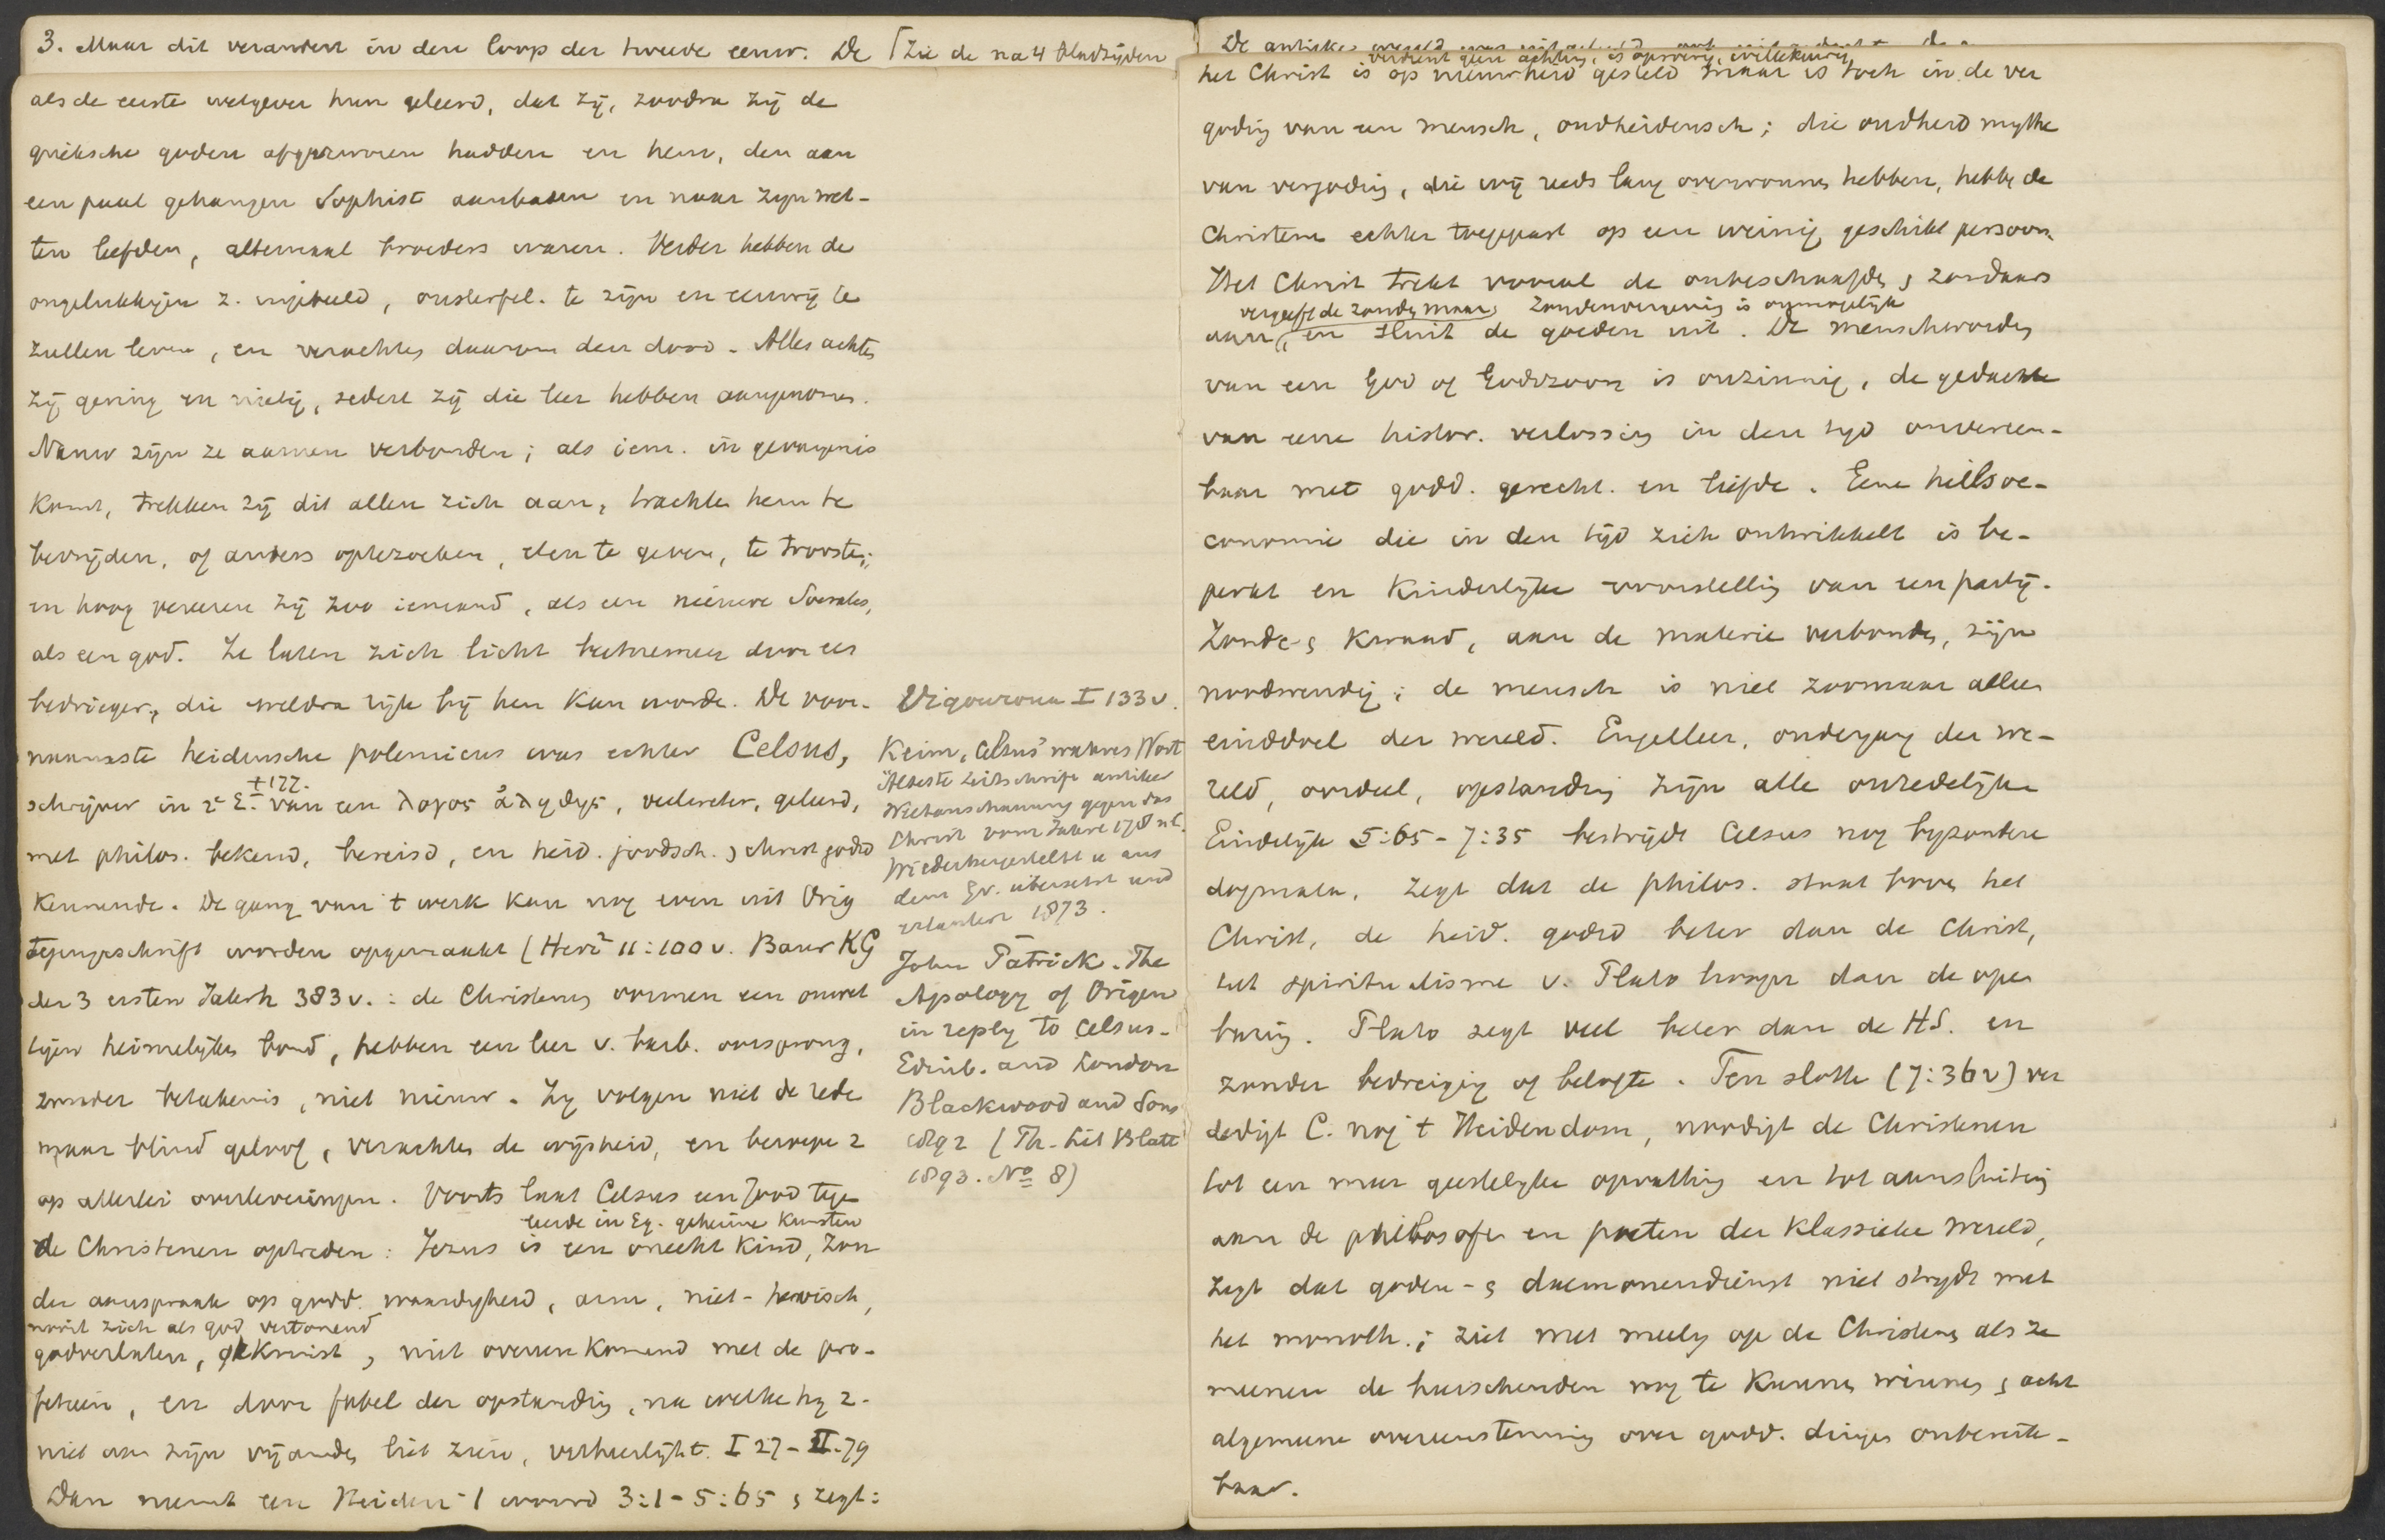 3. Maar dit verandert in den loop der tweede eeuw. De [Zie de na 4 bladzijden
als de eerste wetgever hun geleerd, dat zij, zoodra zij de
grieksche goden afgezworen hadden en hem, den aan
een paal gehangen Sophist aanbaden en naar zijn wet-
ten leefden, altemaal broeders waren. Verder hebben de
ongelukkigen z. ingebeeld, onsterfel. te zijn en eeuwig te
zullen leven, en verachten daarom den dood. Alles achten
zij gering en nietig, sedert zij die leer hebben aangenomen.
Nauw zijn ze aaneen verbonden; als iem. in gevangenis
komt, trekken zij dit allen zich aan, trachten hem te
bevrijden, of anders optezoeken, eten te geven, te troosten;
en hoog vereeren zij zoo iemand, als een nieuwe Socrates,
als een god. Ze laten zich licht beetnemen door een
bedrieger, die weldra rijk bij hen kan worden. De voor-
naamste heidensche polemicus was echter Celsus,
+177.
schrijver in 2e E. van een λογος ἀληθης, veelweter, geleerd,
met philos. bekend, bereisd, en heid. joodsch. & christ godsd
kennende. De gang van 't werk kan nog even uit Orig
tegengeschrift worden opgemaakt (Herz² 11:100 v. Baur KG
der 3 ersten Jahrh 383 v. : de Christenen vormen een onwet
tigen heimelijken bond, hebben een leer v. barb. oorsprong,
zonder beteekenis, niet nieuw. Zij volgen niet de rede
maar blind geloof, verachten de wijsheid, en beroepen z
op allerlei overleveringen. Voorts laat Celsus een Jood tegen
leerde in Eg. geheime kunsten
de Christenen optreden : Jezus is een onecht kind, zon
der aanspraak op godd. waardigheid, arm, niet-heroisch,
nooit zich als god vertoonend
godverlaten, gekruist, niet overeenkomend met de pro-
fetieën, en door fabel der opstanding, na welke hij z.
niet aan zijn vijanden liet zien, verheerlijkt. I 27 - II.79
Dan neemt een Heiden 't woord 3:1 - 5:65 & zegt:
Vigouroux I 133 v.
Keim, Celsus' wahres Wort
Älteste Streitschrift antiker
Weltanschauung gegen das
Christ vom Jahre 178 n C.
Wiederhergestellt u aus
dem Gr. übersetzt und
erläutert 1873.
John Patrick. The
Apology of Origen
in reply to Celsus.
Edinb. and London
Blackwood and Sons
1892 (Th. Lit Blatt
1893. No 8)
De antieke wereld
verdient geen achting, is oproerig, willekeurig
het Christ is op nieuwheid gesteld maar is toch in de ver
goding van een mensch, oudheidensch; die oudheid mythe
van vergoding, die wij reeds lang overwonnen hebben, hebben de
Christenen echter toegepast op een weinig geschikt persoon.
Het Christ trekt vooral de onbeschaafden & zondaars
vergeeft de zonden, maar zondenvergeving is onmogelijk
aan, en sluit de goeden uit. De menschwording
van een God of Godszoon is onzinnig, de gedachte
van eene histor. verlossing in den tijd onvereen-
baar met godd. gerecht. en liefde. Eene heilsoe-
conomie die in den tijd zich ontwikkelt is be-
perkt en kinderlijke voorstelling van een partij.
Zonde & kwaad, aan de materie verbonden, zijn
noodwendig; de mensch is niet zoomaar alleen
einddoel der wereld. Engelleer, ondergang der we-
reld, oordeel, opstanding zijn alle onredelijke
Eindelijk 5:65 - 7:35 bestrijdt Celsus nog byzondere
dogmata, zegt dat de philos. staat boven het
Christ, de heid. godsd beter dan de Christ,
het spiritualisme v. Plato hooger dan de open
baring. Plato zegt veel beter dan de H.S. en
zonder bedreiging of belofte. Ten slotte (7:36 v) ver
dedigt C. nog 't Heidendom, noodigt de Christenen
tot een meer geestelijke opvatting en tot aansluiting
aan de philosofen en poëten der klassieke wereld,
zegt dat goden- & daemonendienst niet strijdt met
het monoth.; ziet met meelij op de Christenen als ze
meenen de heerschenden nog te kunnen winnen & acht
algemeene overeenstemming over godd. dingen onbereik-
baar.